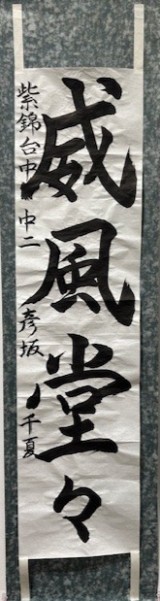 威風堂々
紫錦台中 中二 彦坂 千夏